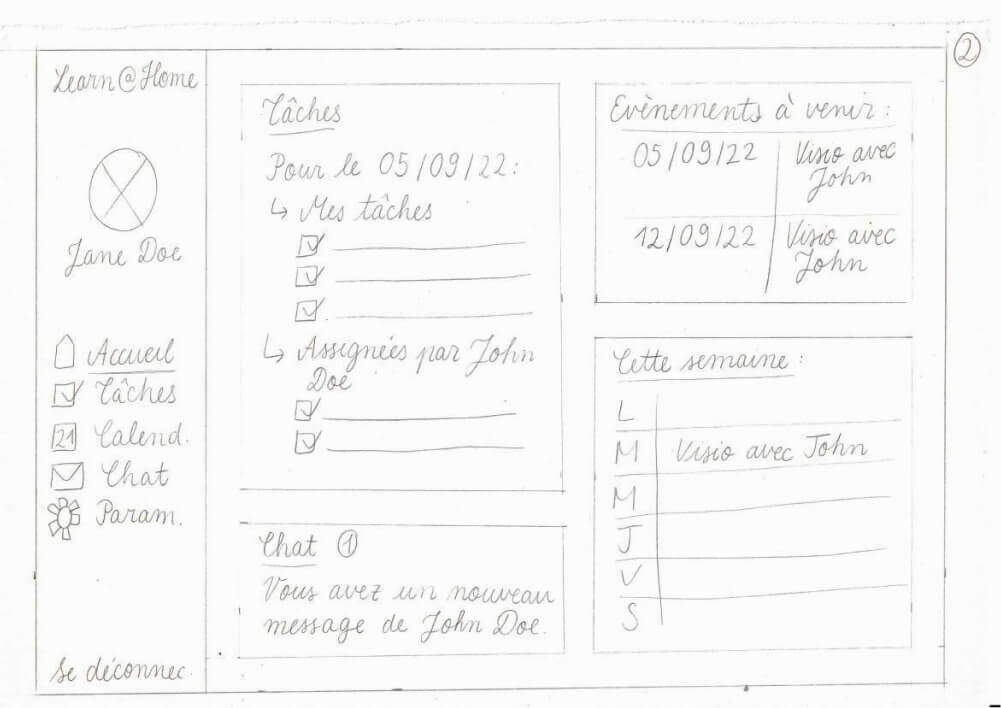 2
Learn@Home
Jane Doe
Accueil
Tâches
21 Calend.
Chat
Param.
Se déconnec.
Tâches
Pour le 05/09/22:
↳ Mes tâches
↳ Assignées par John
Doe
Chat 1
Vous avez un nouveau
message de John Doe.
Evènements à venir :
05/09/22 Visio avec
John
12/09/22 Visio avec
John
Cette semaine :
L
M Visio avec John
M
J
V
S